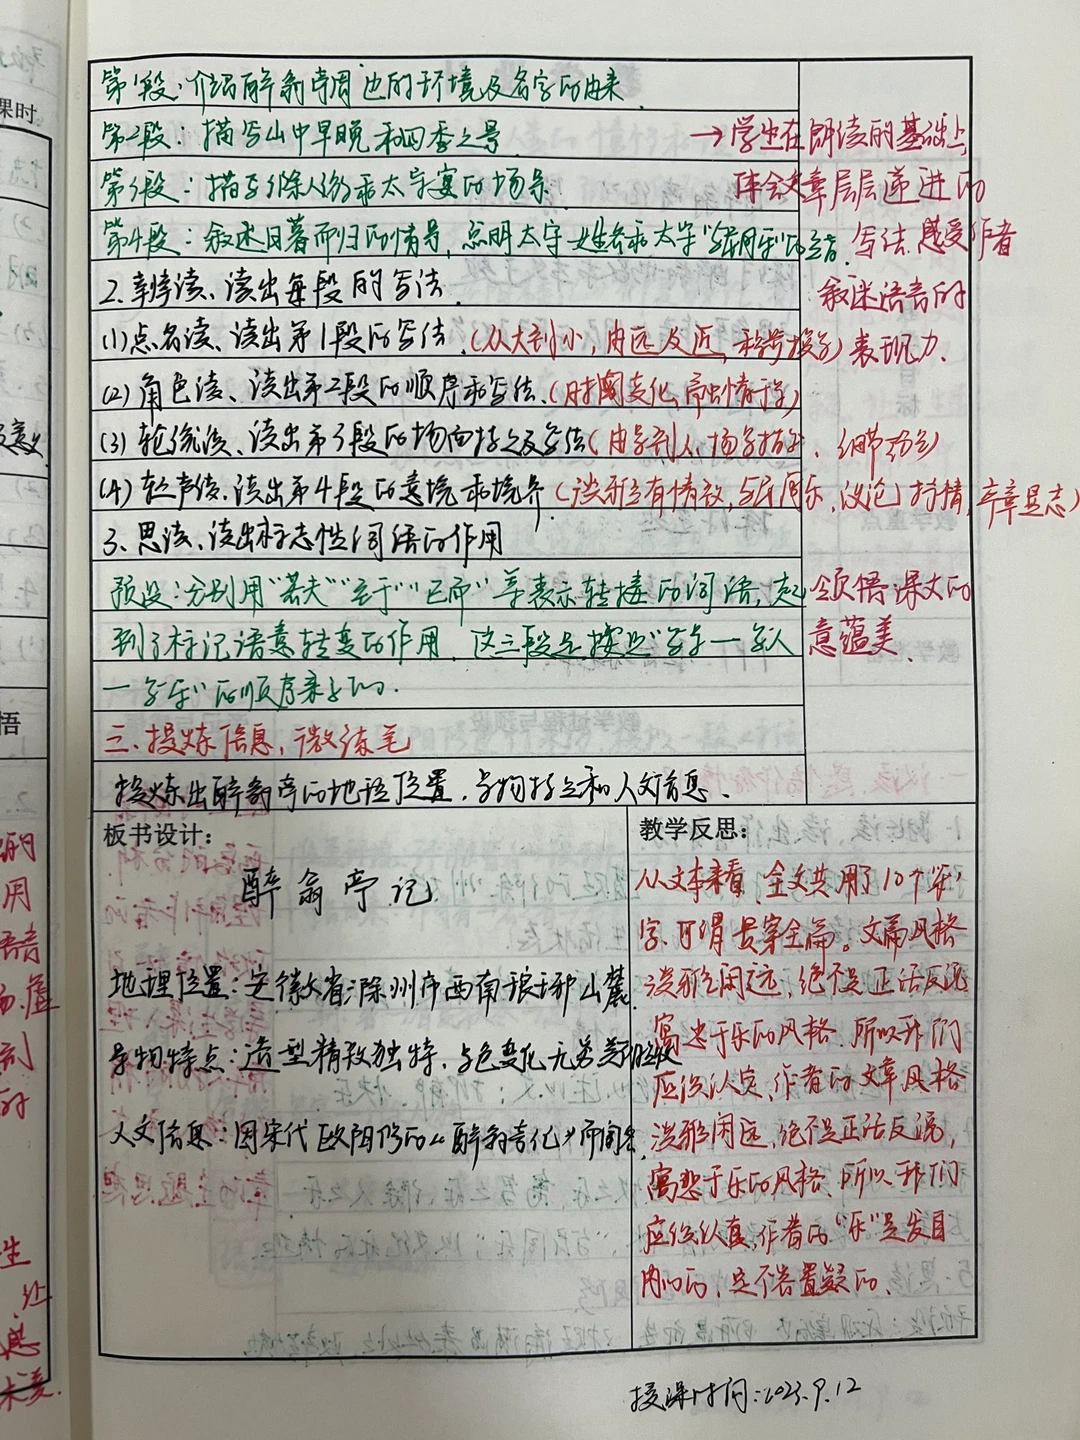 第1段：介绍醉翁亭周边的环境及名字的由来.
第2段：描写山中早晚和四季之景.
第3段：描写滁人游和太守宴的场景
第4段：叙述日暮而归的情景，点明太守姓名和太守“与民同乐”的
2.辨读、读出每段的写法.
(1)点名读、读出第1段的写法.(从大到小，由远及近，移步换景)
(2)角色读、读出第2段的顺序和写法.(时间变化
(3)轮流读、读出第3段的场面特点及写法(由景到人、场景描写、细节
(4)轻声读.读出第4段的意境和境界(淡雅有情致，与民同乐，议论，抒情，卒章显志)
3、思读、读出标志性词语的作用
预设：分别用“若夫”“至于”“已而”等表示转接的词语，起
到了标记语意转变的作用.这三段是按照“写景一写人
一写乐”的顺序来写的.
→学生在朗读的基础上，
体会文章层层递进的
写法.感受作者
叙述语言的
表现力.
领悟课文的
意蕴美.
三、提炼信息，微练笔
提炼出醉翁亭的地理位置，景物特点和人文信息.
板书设计：
醉翁亭记
地理位置：安徽省滁州市西南琅琊山麓
景物特点：造型精致独特，景色变化无穷
人文信息：因宋代欧阳修的《醉翁亭记》而闻名.
教学反思：
从文本来看，全文共用了10个“乐”
字，可谓贯穿全篇。文篇风格
淡雅闲远，绝不是正话反说
寓悲于乐的风格.所以我们
应该认定，作者的文章风格
淡雅闲远，绝不是正话反说，
寓悲于乐的风格，所以我们
应该认真，作者的“乐”是发自
内心的，是不容置疑的.
授课时间：2023.9.12
课时
悟